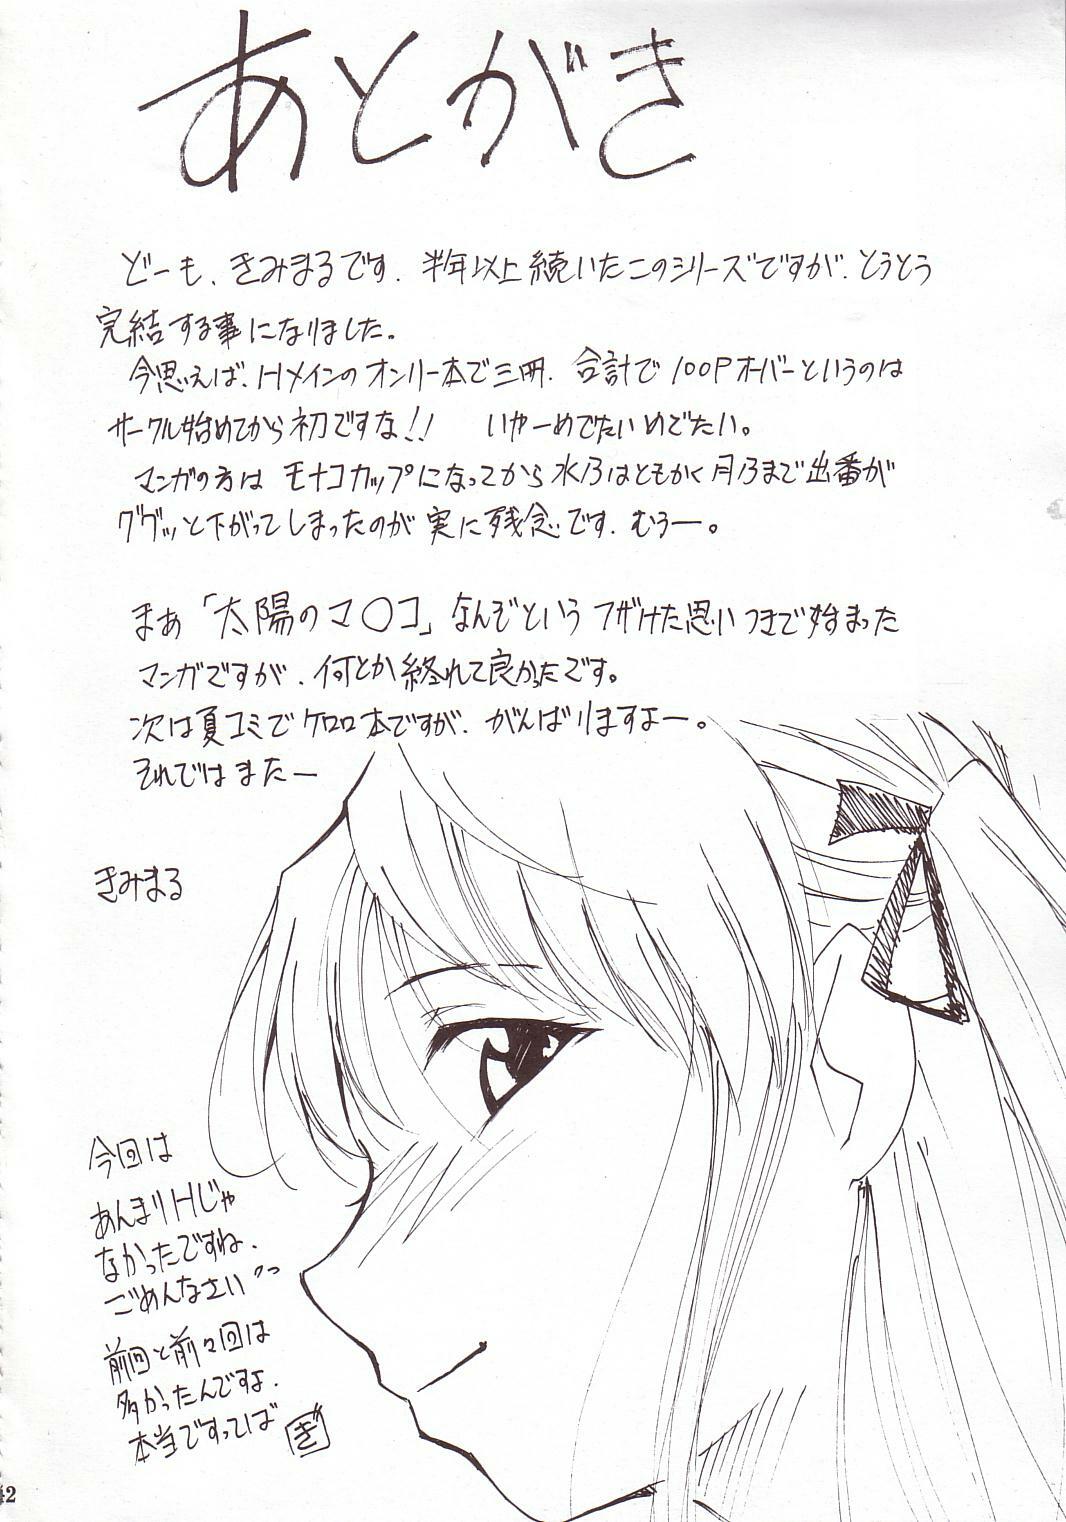 あとがき
どーも、きみまるです。半年以上続いたこのシリーズですが、とうとう
完結する事になりました。
今思えば、Hメインのオンリー本で三冊、合計で100Pオーバーというのは
サークル始めてから初ですな!! いやーめでたいめでたい。
マンガの方はモナコカップになってから水乃はともかく月乃まで出番が
ググッと下がってしまったのが実に残念です。むぅー。
まぁ「太陽のマ〇コ」なんぞというフザけた思いつきで始まった
マンガですが、何とか終れて良かったです。
次は夏コミでケロロ本ですが、がんばりますよー。
それではまたー
きみまる
今回は
あんまりHじゃ
なかったですね、
ごめんなさいっ
前回と前々回は
多かったんですよ、
本当ですってば
き
42